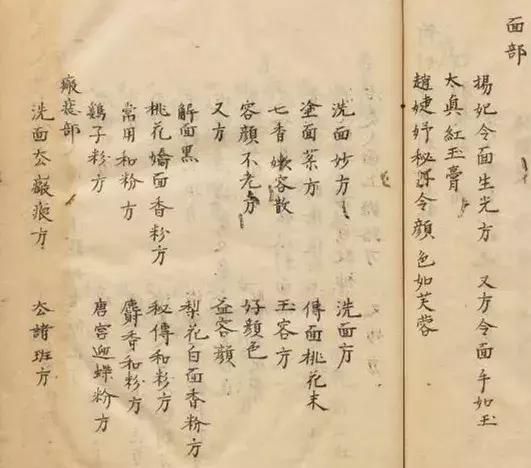 面部
楊妃令面生光方 又方令面手如玉
太真紅玉膏
趙婕妤秘 令顏色如芙蓉
洗面妙方 洗面方
塗面薬方 傅面桃花末
七香嫩容散 玉容方
容顏不老方 好顏色
又方 益容顏
解面黑 梨花白面香粉方
桃花嬌面香粉方 秘傳和粉方
常用和粉方 麝香和粉方
鷄子粉方 唐宮迎蟬粉方
瘢痣部
洗面去瘢痕方 去諸班方